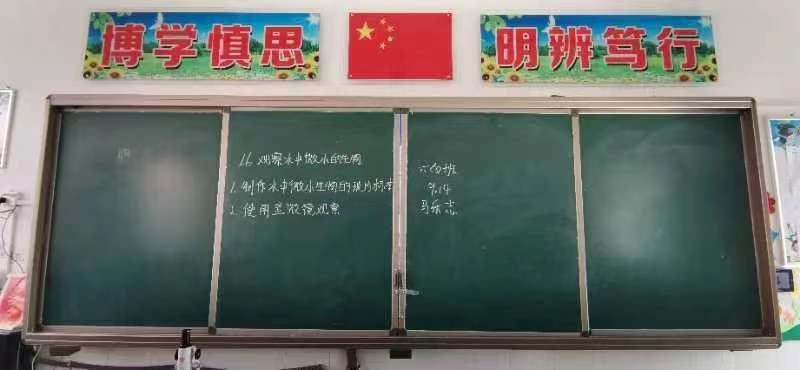 博学慎思
明辨笃行
1.6 观察水中微小的生物
1. 制作水中微小生物的玻片标本
2. 使用显微镜观察
9.14